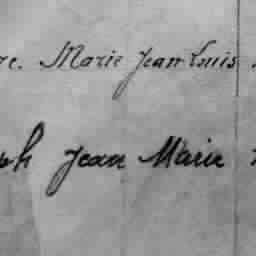 re. Marie Jean Louis
ph Jean Marie